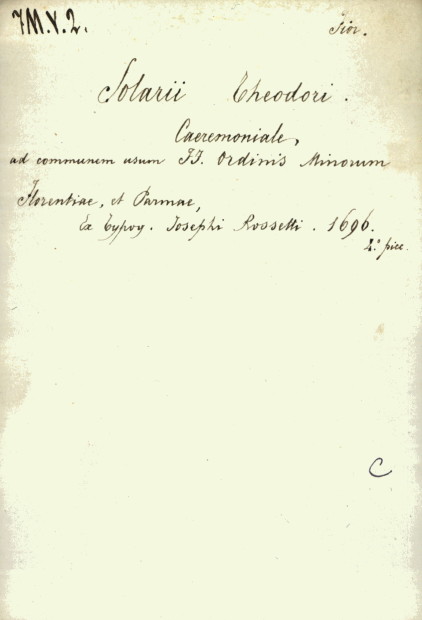 7M.Y.2.
Solarii Theodori.
Caeremoniale,
ad communem usum FF. Ordinis Minorum
Florentiae, et Parmae,
Ex Typog. Josephi Rossetti. 1696.
4.° picc.
C